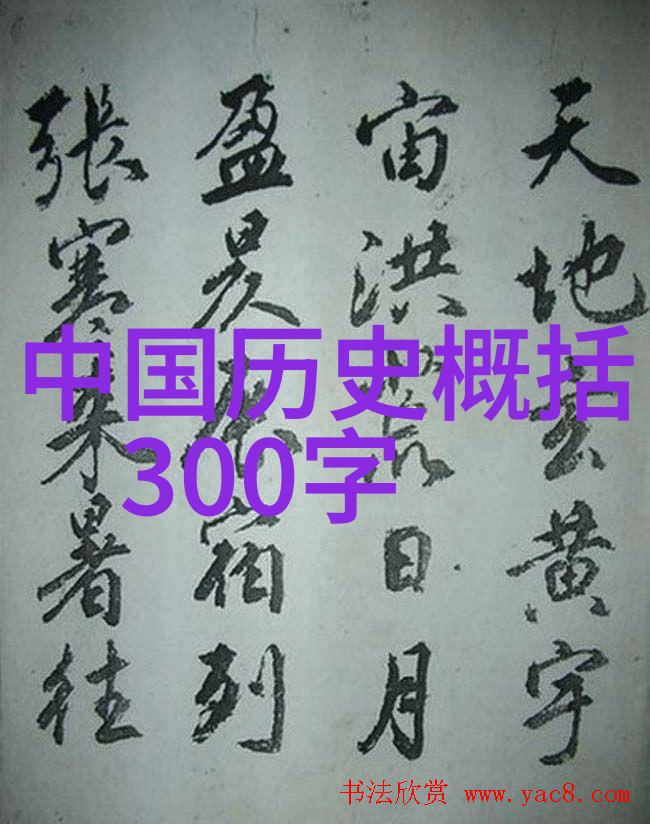 天地玄黄宇
宙洪荒日月
盈昃辰宿列
張寒来暑往
中国历史概括
300字
书法欣赏 www.yac8.com